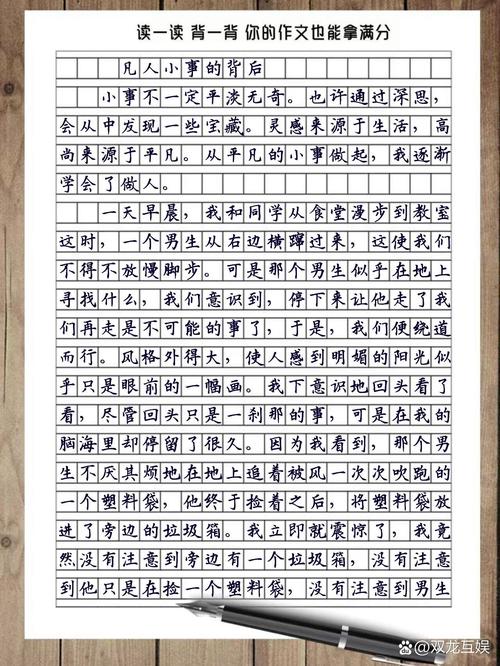 读一读 背一背 你的作文也能拿满分
凡人小事的背后
小事不一定平淡无奇。也许通过深思，
会从中发现一些宝藏。灵感来源于生活，高
尚来源于平凡。从平凡的小事做起，我逐渐
学会了做人。
一天早晨，我和同学从食堂漫步到教室
这时，一个男生从右边横蹿过来，这使我们
不得不放慢脚步。可是那个男生似乎在地上
寻找什么，我们意识到，停下来让他走了我
们再走是不可能的事了，于是，我们便绕道
而行。风格外得大，使人感到明媚的阳光似
乎只是眼前的一幅画。我下意识地回头看了
看，尽管回头只是一刹那的事，可是在我的
脑海里却停留了很久。因为我看到，那个男
生不厌其烦地在地上追着被风一次次吹跑的
一个塑料袋，他终于捡着之后，将塑料袋放
进了旁边的垃圾箱。我立即就震惊了，我竟
然没有注意到旁边有一个垃圾箱，没有注意
到他只是在捡一个塑料袋，没有注意到男生
@双龙互娱